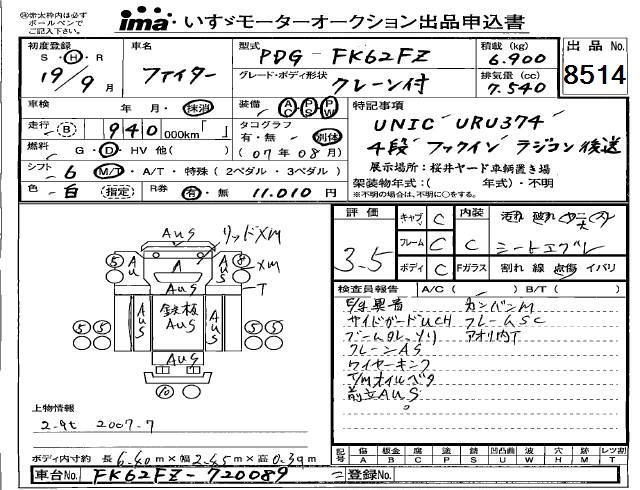 ㊟赤太枠内は必ず
ボールペンで
ご記入下さい。
ima いすゞモーターオークション出品申込書
初度登録
S・H・R
19/9月
車名
ファイター
型式
PDG-FK62FZ
グレード・ボディ形状
クレーン付
積載(kg)
6.900
排気量(cc)
7.540
出品No.
8514
車検
年 月・抹消
装備
AC PS PW
特記事項
走行 B 940 000km「 」
タコグラフ
有・無 別体
(07年08月)
UNIC URU374
4段 フックイン ラジコン後送
燃料 G・D・HV 他( )
シフト 6 M/T・A/T・特殊(2ペダル・3ペダル)
色 白 (指定) R券 有・無 11.010円
展示場所:桜井ヤード車輌置き場
架装物年式:( 年式)・不明
※不明の場合は、不明に○をする。
評価
3.5
キャブ C
フレーム C
ボディ C
内装 C
シートエグレ
Fガラス 割れ 線 点傷 イバリ
AUS
リッドXM
XM
T
A
AUS
AUS
鉄板
AUS
AUS
AUS
AUS
5
8
5 5
5 5
10
検査員報告 A/C( ) B/T( )
E/g異音
カンバンM
サイドガードUCH
フレームSC
アオリ内T
クレーンAS
ワイヤーキンク
T/Mオイルモク
前立AUS
上物情報
2.9t 2007.7
ボディ内寸約 長6.40m×幅2.45m×高0.39m
記号 傷A 板金B 腐C 塗P 錆S 凹凸曲U 波W 穴H 跡M レツ割T
車台No. FK62FZ-720089
登録No.